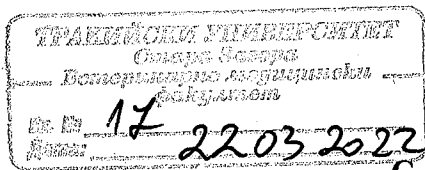 ТРАКИЙСКИ УНИВЕРСИТЕТ
Стара Загора
Ветеринарно медицински
факултет
Вх. № 17
Дата: 22 03 2022